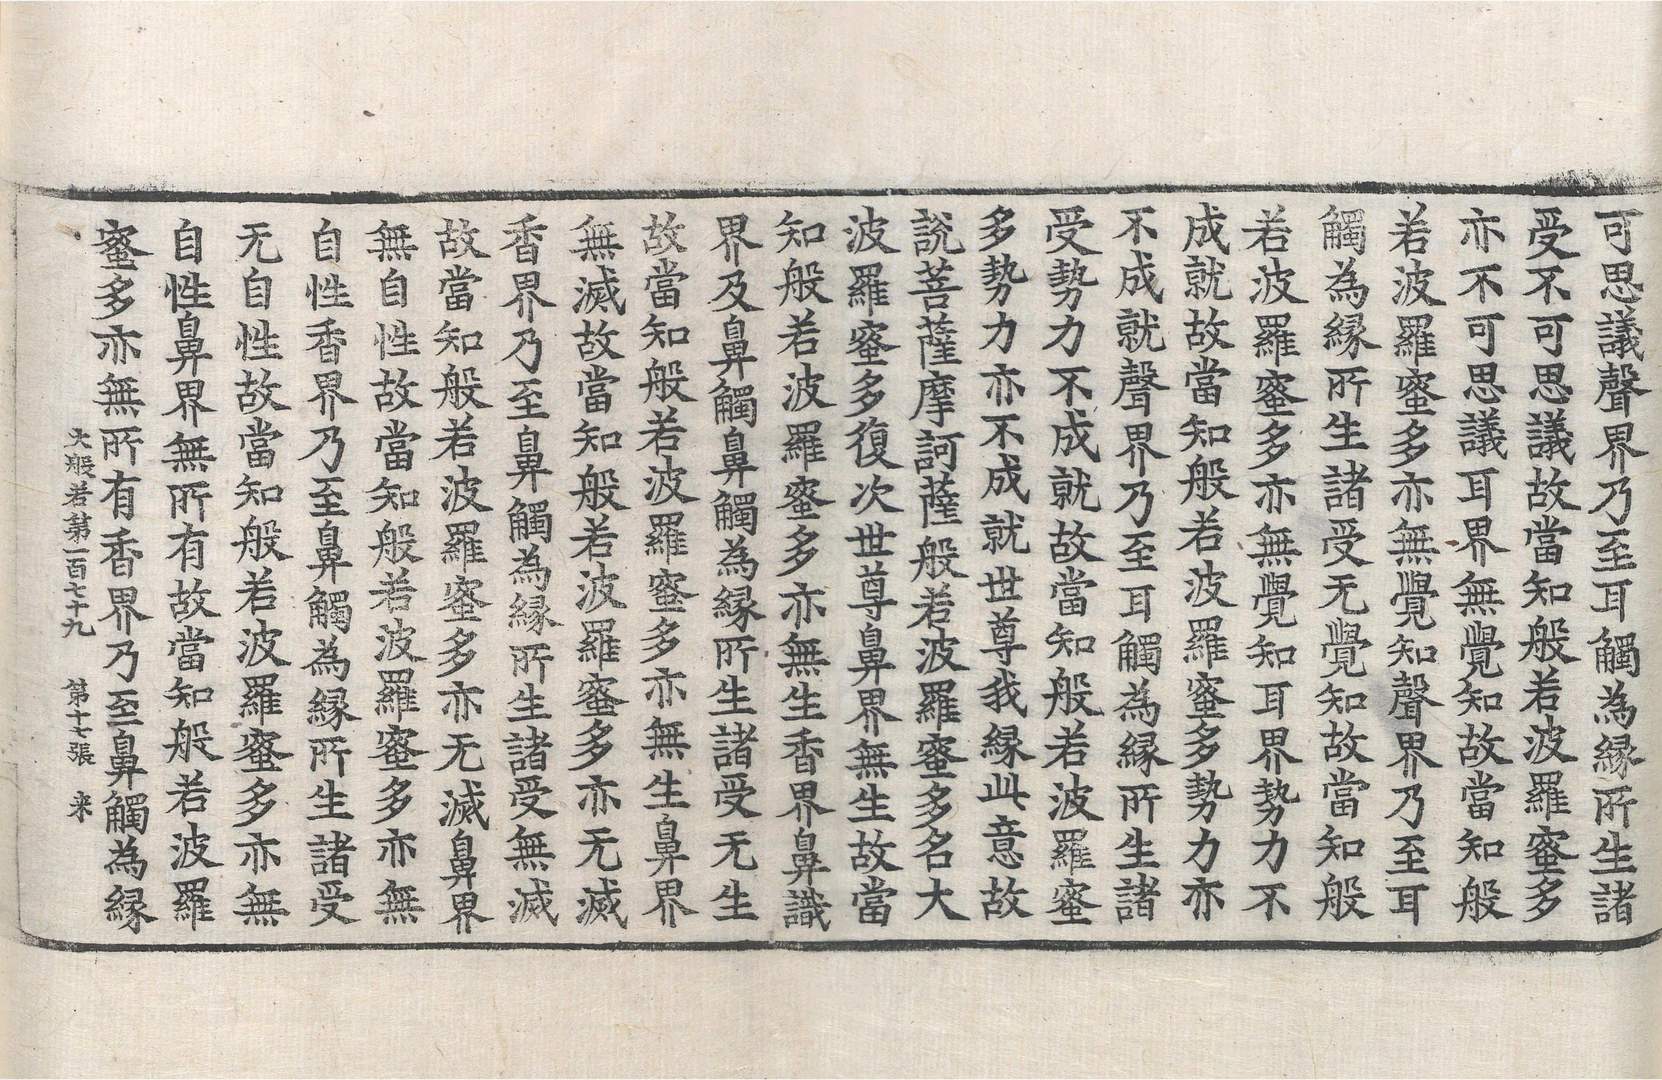 可思議聲界乃至耳觸為緣所生諸
受不可思議故當知般若波羅蜜多
亦不可思議耳界無覺知故當知般
若波羅蜜多亦無覺知聲界乃至耳
觸為緣所生諸受无覺知故當知般
若波羅蜜多亦無覺知耳界勢力不
成就故當知般若波羅蜜多勢力亦
不成就聲界乃至耳觸為緣所生諸
受勢力不成就故當知般若波羅蜜
多勢力亦不成就世尊我緣此意故
說菩薩摩訶薩般若波羅蜜多名大
波羅蜜多復次世尊鼻界無生故當
知般若波羅蜜多亦無生香界鼻識
界及鼻觸鼻觸為緣所生諸受无生
故當知般若波羅蜜多亦無生鼻界
無滅故當知般若波羅蜜多亦无滅
香界乃至鼻觸為緣所生諸受無滅
故當知般若波羅蜜多亦无滅鼻界
無自性故當知般若波羅蜜多亦無
自性香界乃至鼻觸為緣所生諸受
无自性故當知般若波羅蜜多亦無
自性鼻界無所有故當知般若波羅
蜜多亦無所有香界乃至鼻觸為緣
大般若第一百七十九 第十七張 来